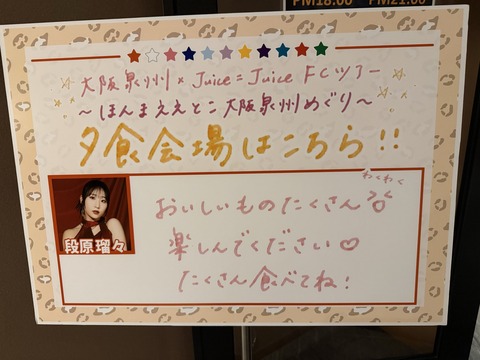 PM18:00 PM21:00
大阪泉州×Juice=Juice FCツアー
〜ほんまええとこ大阪泉州めぐり〜
夕食会場はこちら!!
わくわく
おいしいものたくさん
楽しんでください♡
たくさん食べてね!
段原瑠々